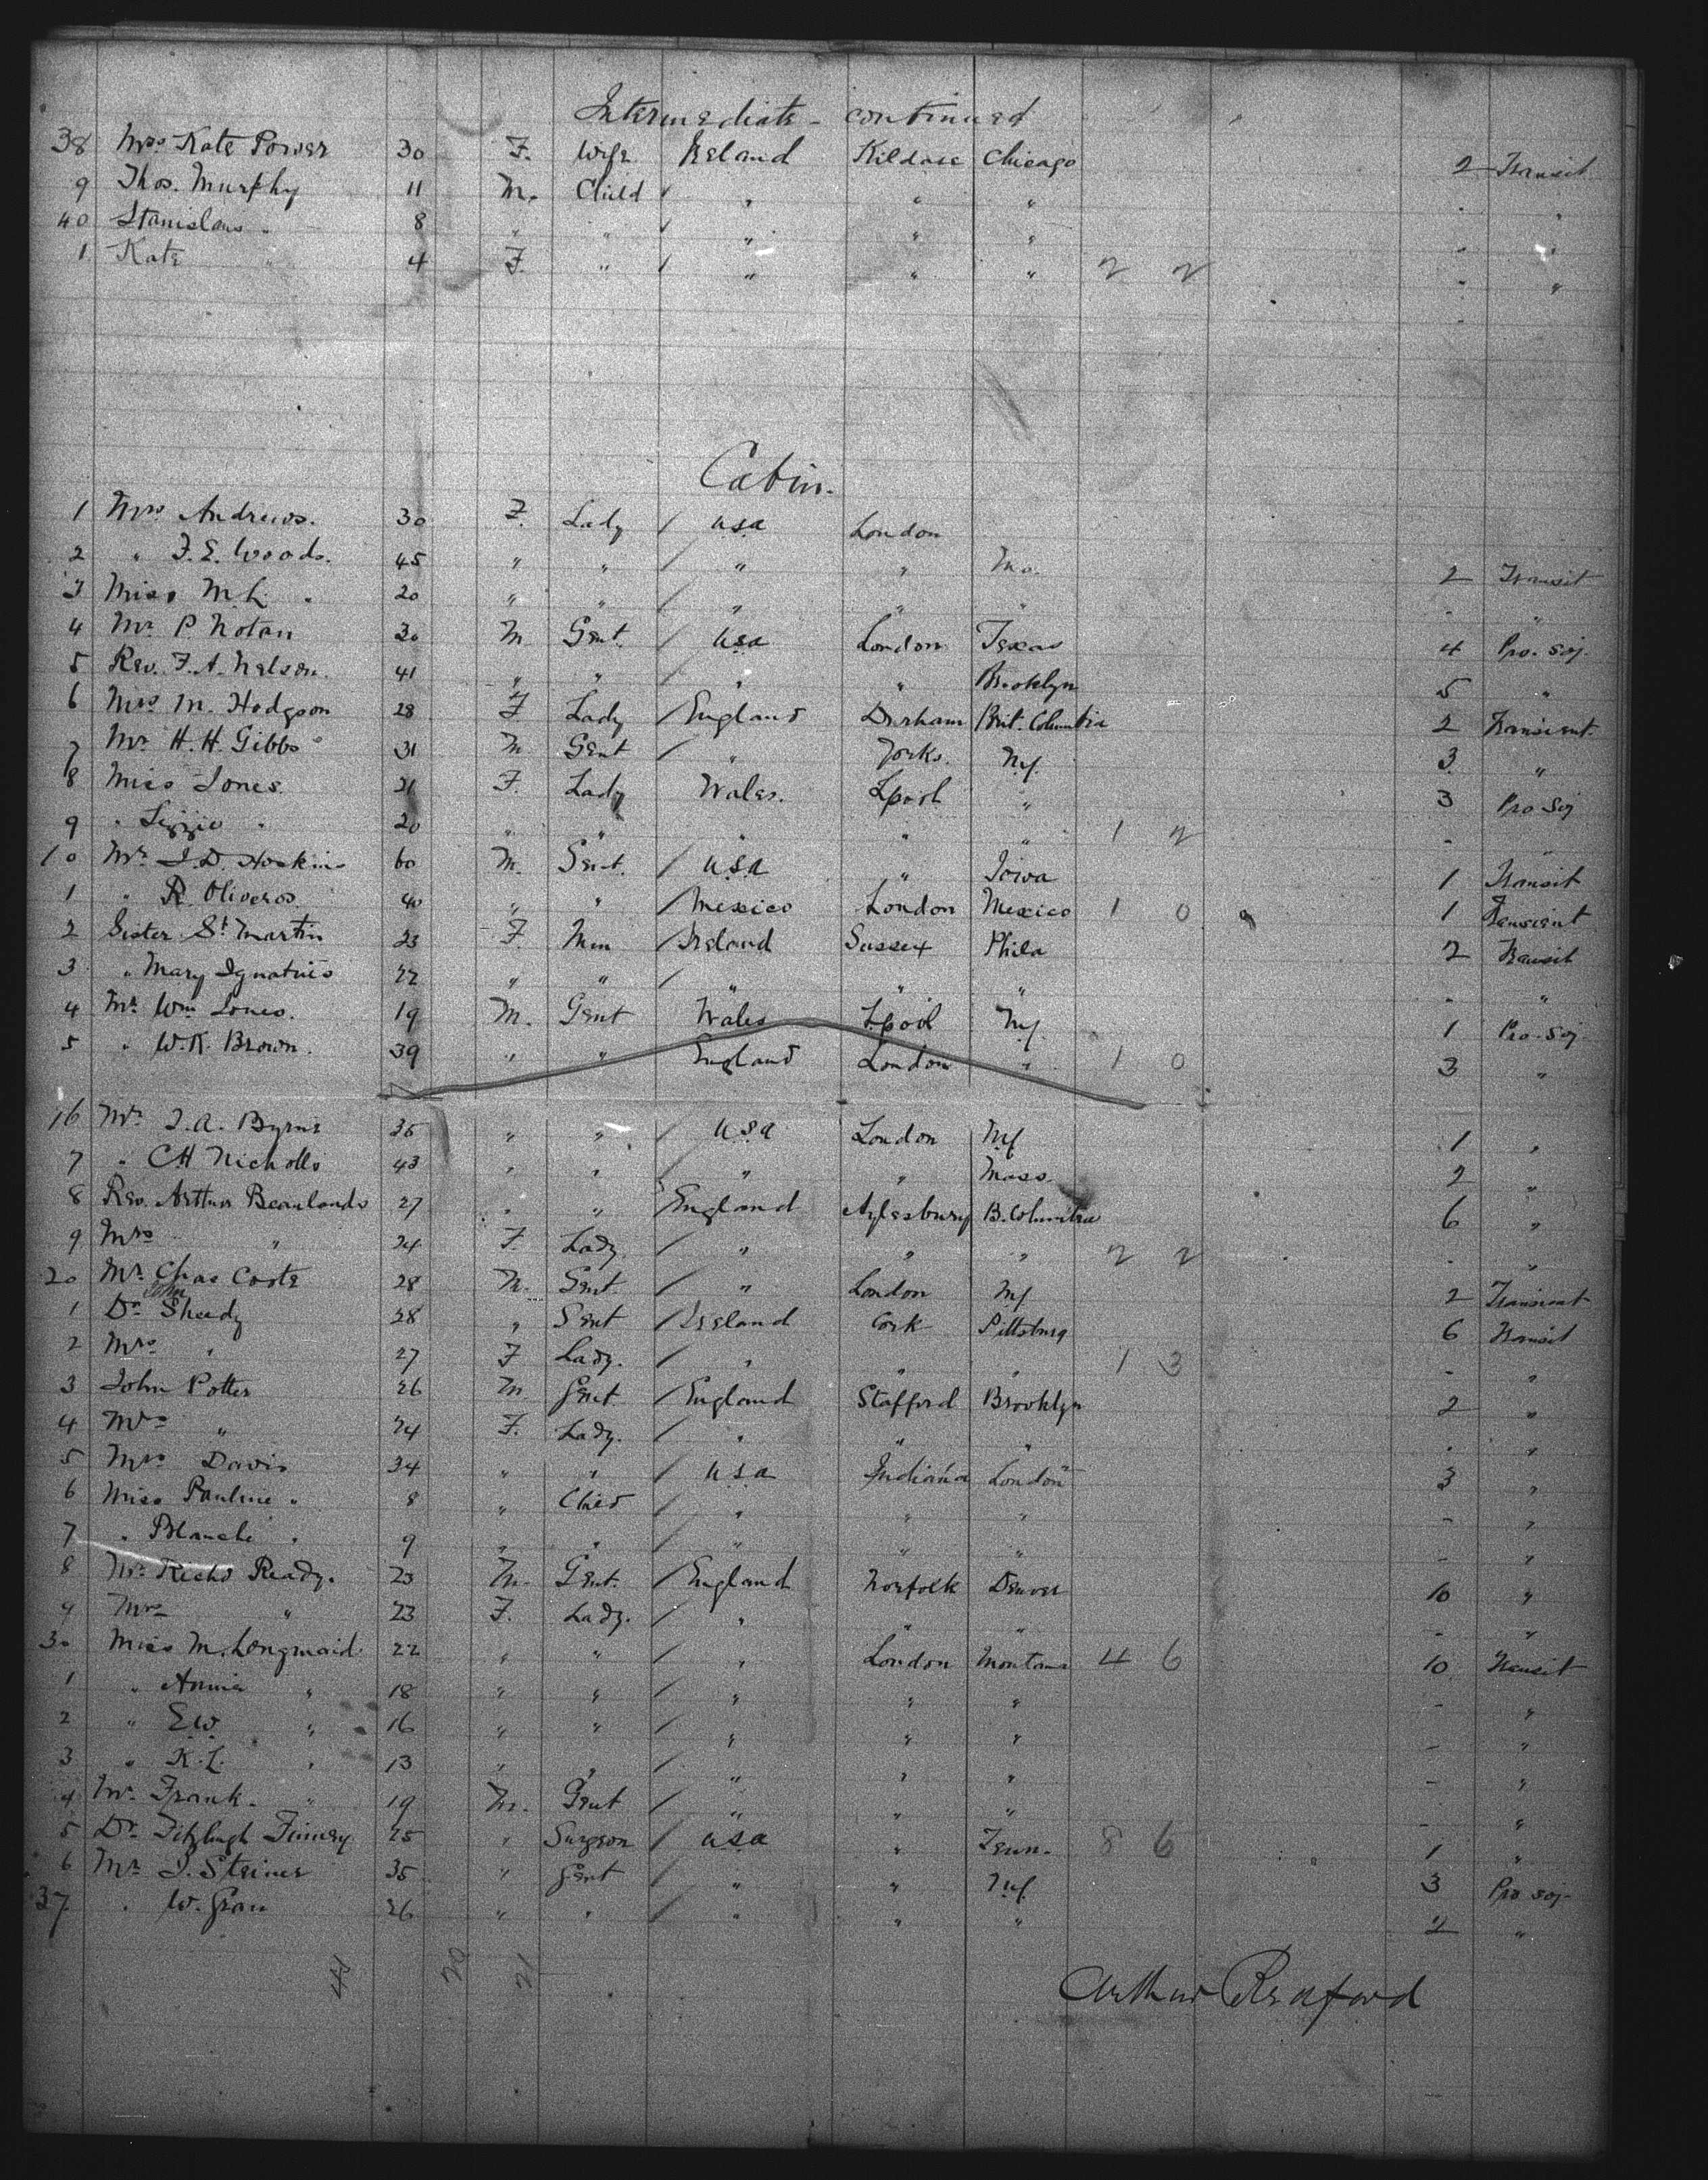 Intermediate - continued
38 Mrs Kate Power 30 F. Wife Ireland Kildare Chicago 2 Transit
9 Thos. Murphy 11 M. Child / " " " - "
40 Stanislaus " 8 " " / " " " - "
1 Kate " 4 F. " / " " " 2 2 - "
Cabin.
1 Mrs Andrews. 30 F. Lady / USA London
2 " F. E. Woods. 45 " " / " " Mo. 2 Transit
3 Miss M L " 20 " " / " " " - "
4 Mr P Nolan 30 M Gent. / USA London Texas 4 Pro. Soj.
5 Rev. F. A. Nelson. 41 " " / " " Brooklyn 5 "
6 Mrs M. Hodgson 28 F Lady / England Durham Brit. Columbia 2 Transient.
7 Mr H. H. Gibbs 31 M Gent / " Yorks. NY. 3 "
8 Miss Jones. 21 F. Lady Wales. Lpool " 3 Pro Soj
9 " Lizzie " 20 " " " " " 1 2 - "
10 Mr J. D. Hoskins 60 M. Gent. / USA " Iowa 1 Transit
1 " R. Oliveros 40 " " / Mexico London Mexico 1 0 1 Transient
2 Sister St Martin 23 F. Nun / Ireland Sussex Phila 2 Transit
3 " Mary Ignatius 22 " " / " " " - "
4 Mr Wm Jones. 19 M. Gent Wales Lpool NY. 1 Pro. Soj.
5 " W. K. Brown. 39 " " England London " 1 0 3 "
16 Mr J. A. Byrne 35 " " / USA London NY 1 "
7 " C H Nicholls 43 " " / " " Mass. 2 "
8 Rev. Arthur Beaulands 27 " " England Aylesbury B. Columbia 6 "
9 Mrs " 24 F. Lady / " " " 2 2 - "
20 Mr Chas Coste 28 M. Gent. / " London NY 2 Transient
1 Dr John Sheedy 28 " Gent / Ireland Cork Pittsburg 6 Transit
2 Mrs " 27 F Lady. / " " " 1 3 - "
3 John Potter 26 M Gent / England Stafford Brooklyn 2 "
4 Mrs " 24 F. Lady. / " " " - "
5 Mrs Davis 34 " " / USA Indiana London 3 "
6 Miss Pauline " 8 " Child / " " " - "
7 " Blanche " 9 " " / " " " - "
8 Mr Richd Ready. 23 M. Gent. / England Norfolk Denver 10 "
9 Mrs " 23 F. Lady. / " " " - "
30 Miss M. Longmaid 22 " " / " London Montana 4 6 10 Transit
1 " Annie " 18 " " / " " " - "
2 " E W. " 16 " " / " " " - "
3 " K. L. " 13 " " / " " " - "
4 Mr Frank. " 19 M. Gent / " " " - "
5 Dr Fitzhugh Finney 25 " Surgeon / USA " Tenn. 8 6 1 "
6 Mr J. Steiner 35 " Gent / " " NY. 3 Pro Soj-
37 " W. Grau 26 " " / " " " 2 "
41 20 21
Arthur Redford